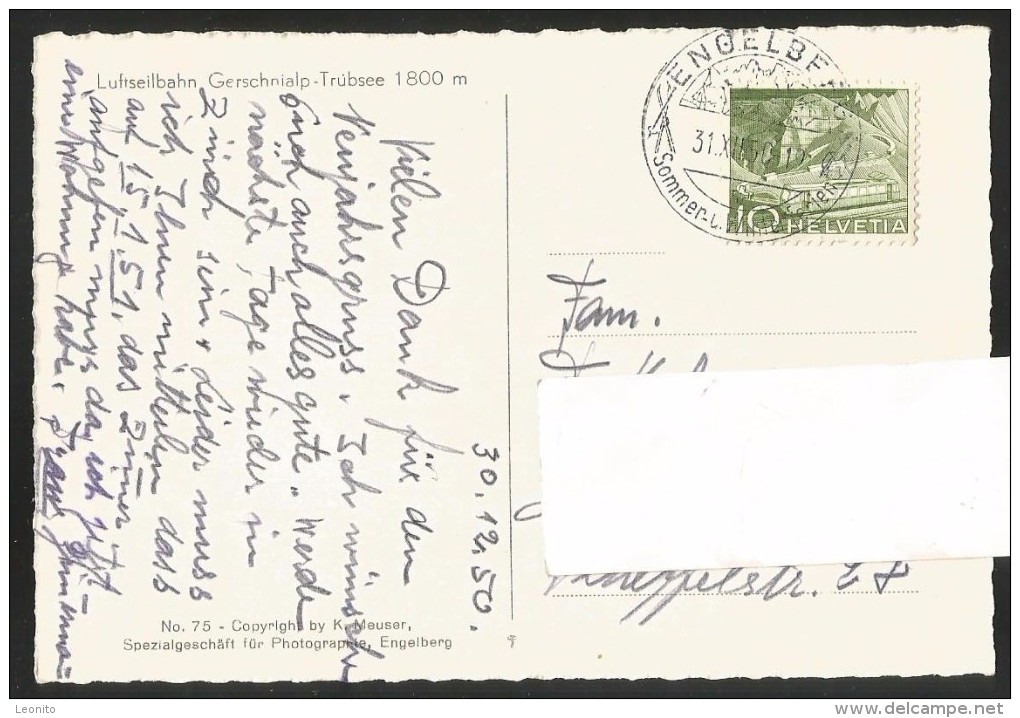 Luftseilbahn Gerschnialp-Trübsee 1800 m
30.12.50.
Vilen Dank für den
Neujahrsgruss. Ich wünsche
Euch auch alles gute. Werde
nächste Tage wieder in
Zürich sein. Leider muss
ich Ihnen mitteilen dass
auf 15.1.51. das Zimer
aufgeben muss da ich jetzt
eine Wohnung habe.
No. 75 - Copyright by K. Meuser,
Spezialgeschäft für Photographie, Engelberg
ENGELBERG
31.XII.50
Sommer- u.
10
HELVETIA
Fam.
28
Leonito
delcampe.net